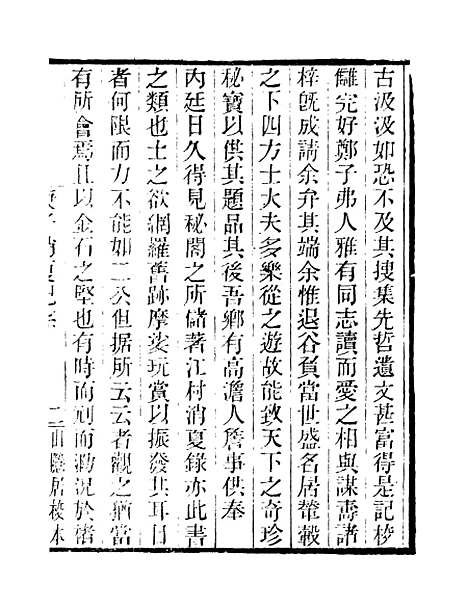 古汲汲如恐不及其搜集先哲遺文甚富得是記校
讎完好鄭子弗人雅有同志讀而愛之相與謀壽諸
梓旣成請余弁其端余惟退谷負當世盛名居輦轂
之下四方士大夫多樂從之遊故能致天下之奇珍
秘寶以供其題品其後吾鄉有高澹人詹事供奉
內廷日久得見秘閣之所儲著江村消夏錄亦此書
之類也士之欲網羅舊跡摩挲玩賞以振發其耳目
者何限而力不能如二公但据所云云者觀之猶當
有所會焉且以金石之堅也有時而刓而泐況於楮
庚子消夏記序
二
居校本